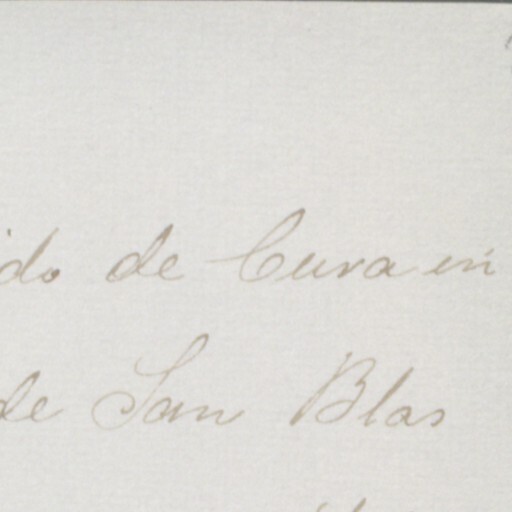 ido de Cura en
de San Blas